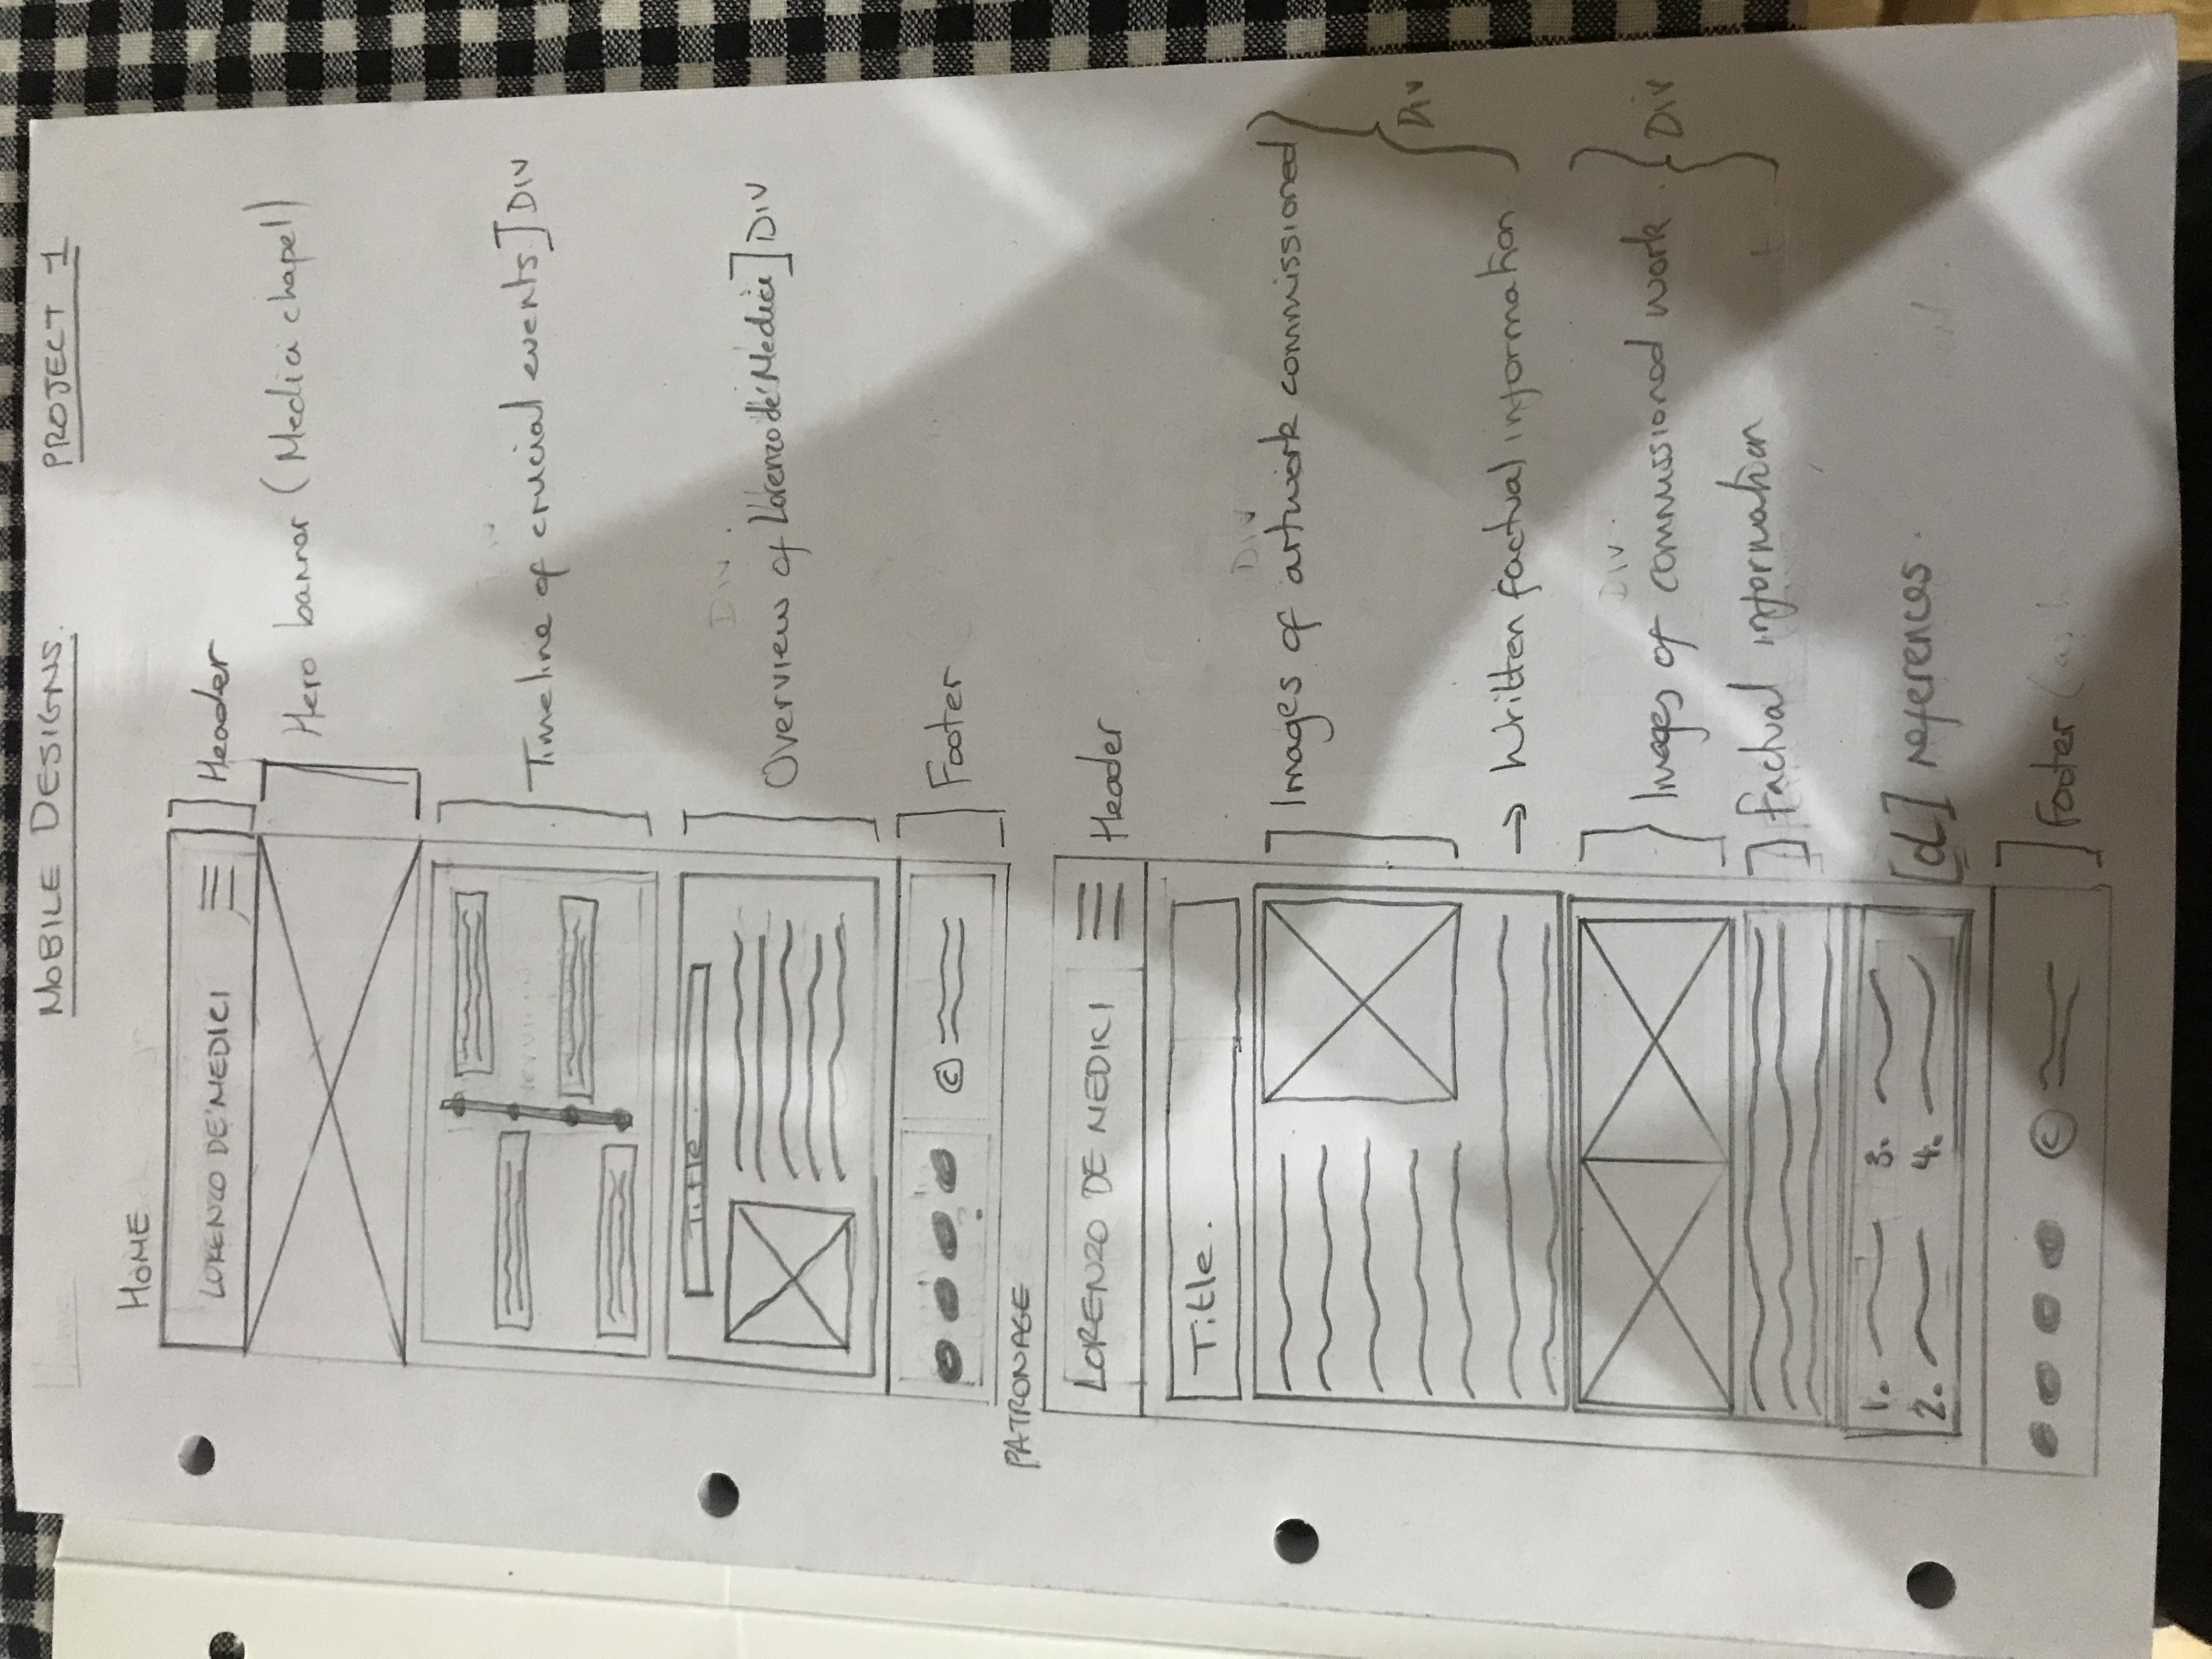 MOBILE DESIGNS.
PROJECT 1
HOME
LORENZO DE'MEDICI
Header
Hero banner (Medici chapel)
Div
Timeline of crucial events] DIV
Title.
Div.
Overview of Lorenzo de' Medici] DIV
©
Footer
PATRONAGE
LORENZO DE MEDICI
Header
Title.
Div
Images of artwork commissioned
Div
→ Written factual information
Div.
Images of commissioned work.
Div
factual information
1.
3.
2.
4.
[d] references.
©
Footer